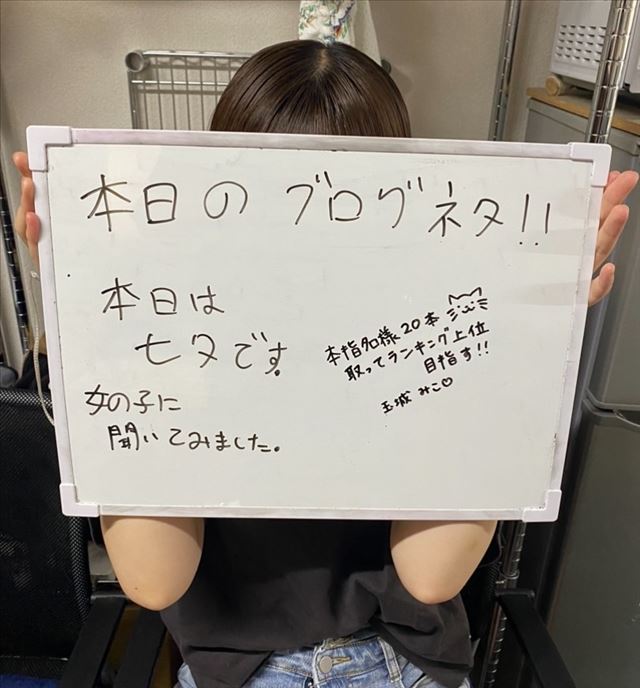 本日の ブログネタ!!
本日は
七夕です。
女の子に
聞いてみました。
本指名様20本
取ってランキング上位
目指す!!
玉城 みこ♡